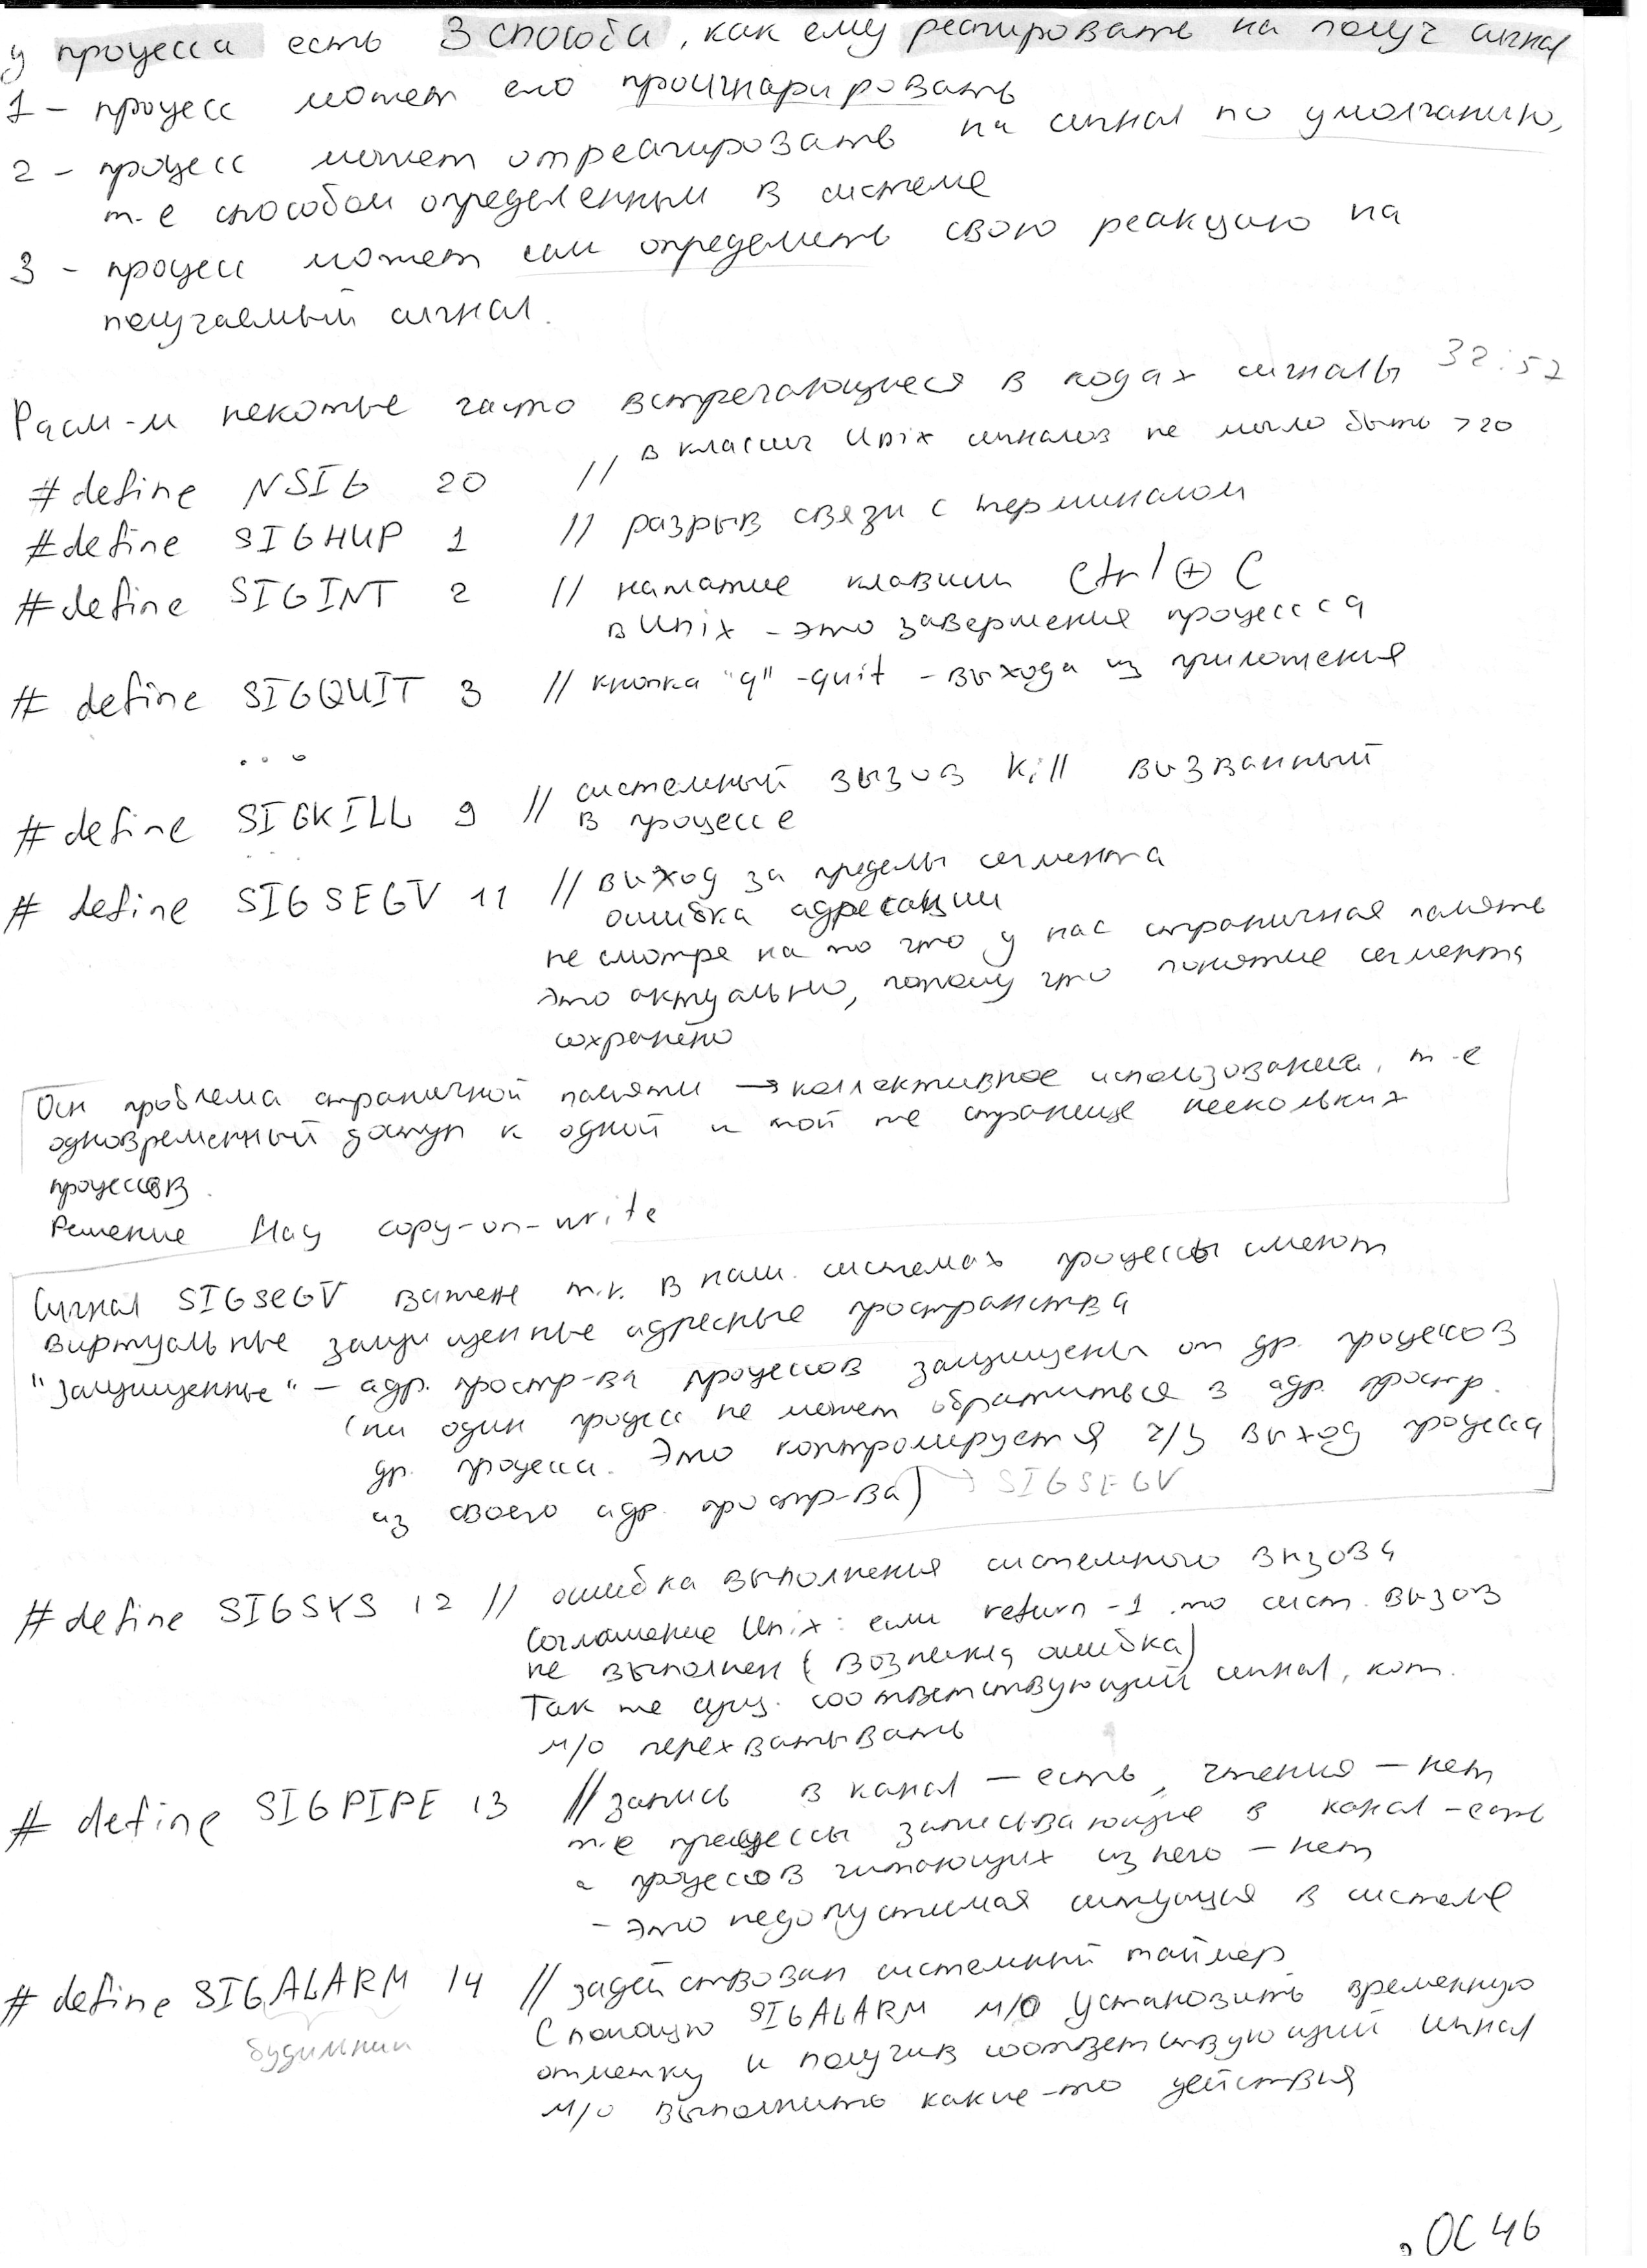 у процесса есть 3 способа, как ему реагировать на получ сигнал
1 - процесс может его проигнарировать
2 - процесс может отреагировать на сигнал по умолчанию,
т.е способом определенным в системе
3 - процесс может сам определить свою реакцию на
получаемый сигнал.
Расм-м некоторые часто встречающиеся в кодах сигналы 32:52
#define NSIG 20 // в классич Unix сигналов не могло быть >20
#define SIGHUP 1 // разрыв связи с терминалом
#define SIGINT 2 // нажатие клавиш Ctrl ⊕ C
в Unix - это завершения процесса
# define SIGQUIT 3 // кнопка "q" - quit - выхода из приложения
...
# define SIGKILL 9 // системный вызов kill вызванный
в процессе
...
# define SIGSEGV 11 // выход за пределы сегмента
ошибка адресации
не смотря на то что у нас страничная память
это актуально, потому что понятие сегмента
сохранено
Осн проблема страничной памяти → коллективное использования, т-е
одновременный доступ к одной и той же странице нескольких
процессов.
Решение copy-on-write
Сигнал SIGSEGV важен т.к. в наш. системах процессы имеют
виртуальные защищенные адресные пространства
"защищенные" - адр. простр-ва процессов защищены от др. процессов
(ни один процесс не может обратиться в адр. простр.
др. процесса. Это контролируется ч/з выход процесса
из своего адр. простр-ва) → SIGSEGV
# define SIGSYS 12 // ошибка выполнения системного вызова
Соглашение Unix: если return -1, то сист. вызов
не выполнен (возникла ошибка)
Так же сущ. соответствующий сигнал, кот.
м/о перехватывать
# define SIGPIPE 13 // запись в канал - есть, чтения - нет
т.е процессы записывающие в канал - есть
а процессов читающих из него - нет
- это недопустимая ситуация в системе
# define SIGALARM 14 // задействован системный таймер
будильник
С помощью SIGALARM м/о установить временную
отметку и получив соответствующий сигнал
м/о выполнить какие-то действия
ОС 46